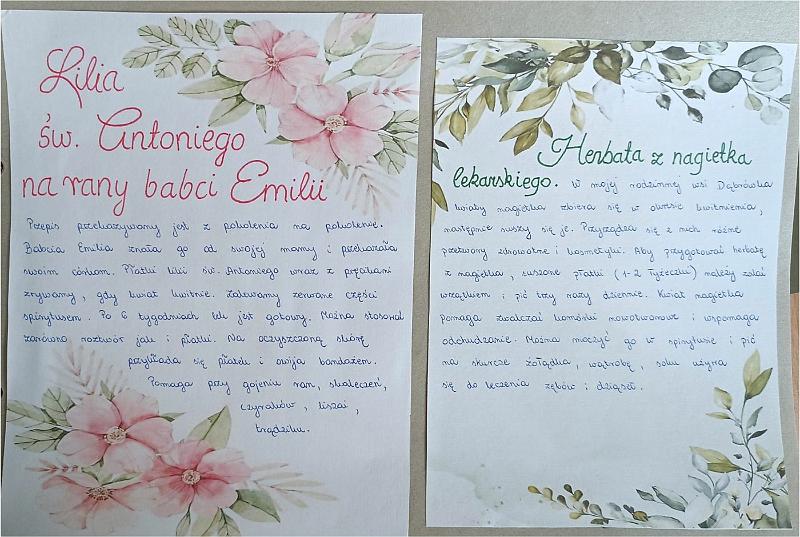 Lilia
św. Antoniego
na rany babci Emilii
Przepis przekazywany jest z pokolenia na pokolenie.
Babcia Emilia znała go od swojej mamy i przekazała
swoim córkom. Płatki lilii św. Antoniego wraz z pręcikami
zrywamy, gdy kwiat kwitnie. Zalewamy zerwane części
spirytusem. Po 6 tygodniach lek jest gotowy. Można stosować
zarówno roztwór jak i płatki. Na oczyszczoną skórę
przykłada się płatek i owija bandażem.
Pomaga przy gojeniu ran, skaleczeń,
czyraków, liszai,
trądziku.
Herbata z nagietka
lekarskiego. W mojej rodzinnej wsi Dąbrówka
kwiaty nagietka zbiera się w okresie kwitnienia,
następnie suszy się je. Przyrządza się z nich różne
przetwory zdrowotne i kosmetyki. Aby przygotować herbatę
z nagietka, suszone płatki (1-2 łyżeczki) należy zalać
wrzątkiem i pić trzy razy dziennie. Kwiat nagietka
pomaga zwalczać komórki nowotworowe i wspomaga
odchudzanie. Można moczyć go w spirytusie i pić
na skurcze żołądka, wątrobę, soku używa
się do leczenia zębów i dziąseł.